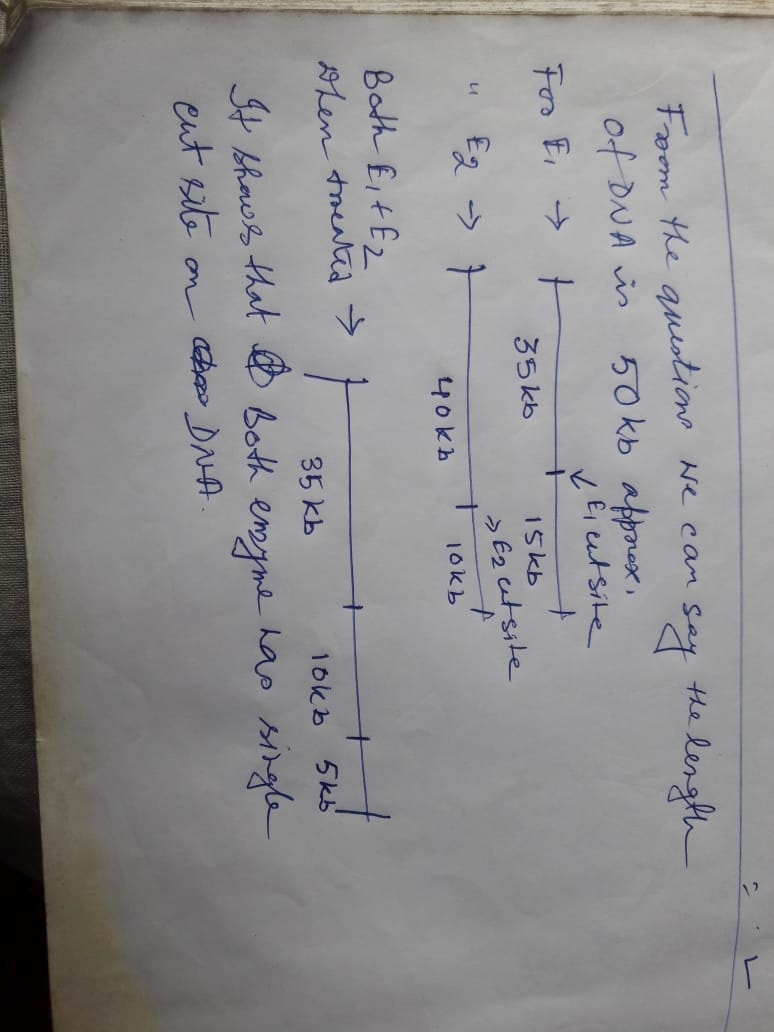 From the question we can say the length
of DNA is 50kb approx.
For E1 →
35kb
15kb
↙ E1 cutsite
" E2 →
40kb
10kb
→ E2 cutsite
Both E1 + E2
when treated →
35kb
10kb
5kb
It shows that Both enzyme has single
cut site on DNA.